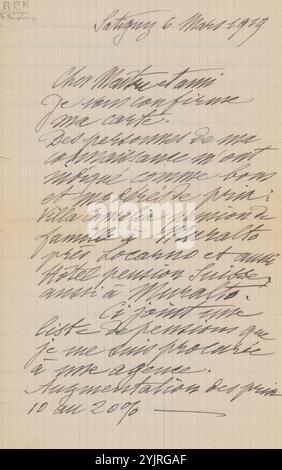 RPK
Satigny 6 Mars 1919
Cher Maître et ami
Je vous confirme
ma carte.
Des personnes de ma
connaissance m'ont
indiqué comme bons
et modérés de prix:
Villa pension de
famille à Muralto
près Locarno et aussi
Hôtel pension Suisse,
aussi à Muralto.
Ci joint une
liste de pensions que
je me suis procurée
à une agence.
Augmentation des prix
10 au 20%
alamy
Image ID: 2YJRGAF
www.alamy.com